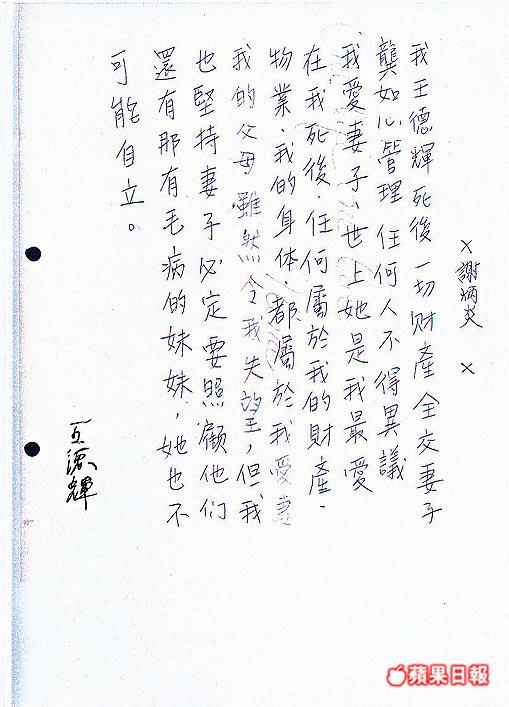 ×謝炳炎 ×
我王德輝死後一切財產全交妻子
龔如心管理 任何人不得異議
我愛妻子、世上她是我最愛
在我死後、任何屬於我的財產、
物業、我的身体、都屬於我愛妻
我的父母雖然令我失望,但我
也堅持妻子必定要照顧他们
還有那有毛病的妹妹,她也不
可能自立。
王德輝
蘋果日報